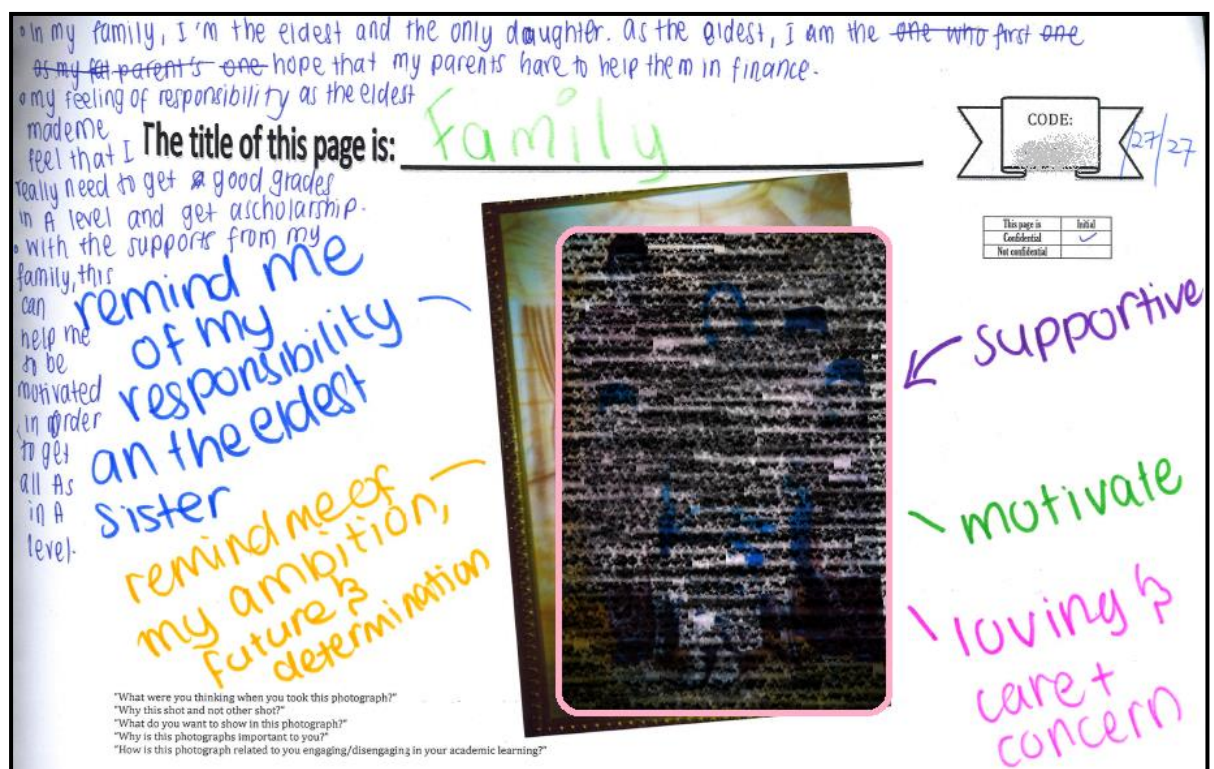 • In my family, I'm the eldest and the only daughter. As the eldest, I am the one who first one
as my fat parent's one hope that my parents have to help them in finance.
• my feeling of responsibility as the eldest
made me
feel that I
really need to get a good grades
in A level and get a scholarship.
• with the supports from my
family, this
can
help me
to be
motivated
in order
to get
all As
in A
level.
The title of this page is: Family
CODE:
27/27
This page is Initial
Confidential ✓
Not confidential
remind me
of my
responsibility
an the eldest
sister
remind me of
my ambition,
future &
determination
supportive
motivate
loving &
care +
concern
"What were you thinking when you took this photograph?"
"Why this shot and not other shot?"
"What do you want to show in this photograph?"
"Why is this photographs important to you?"
"How is this photograph related to you engaging/disengaging in your academic learning?"